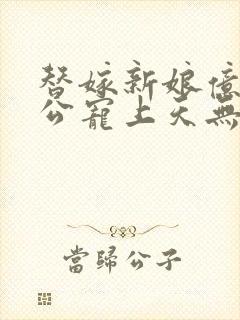 替嫁新娘億
公寵上天無
當歸公子